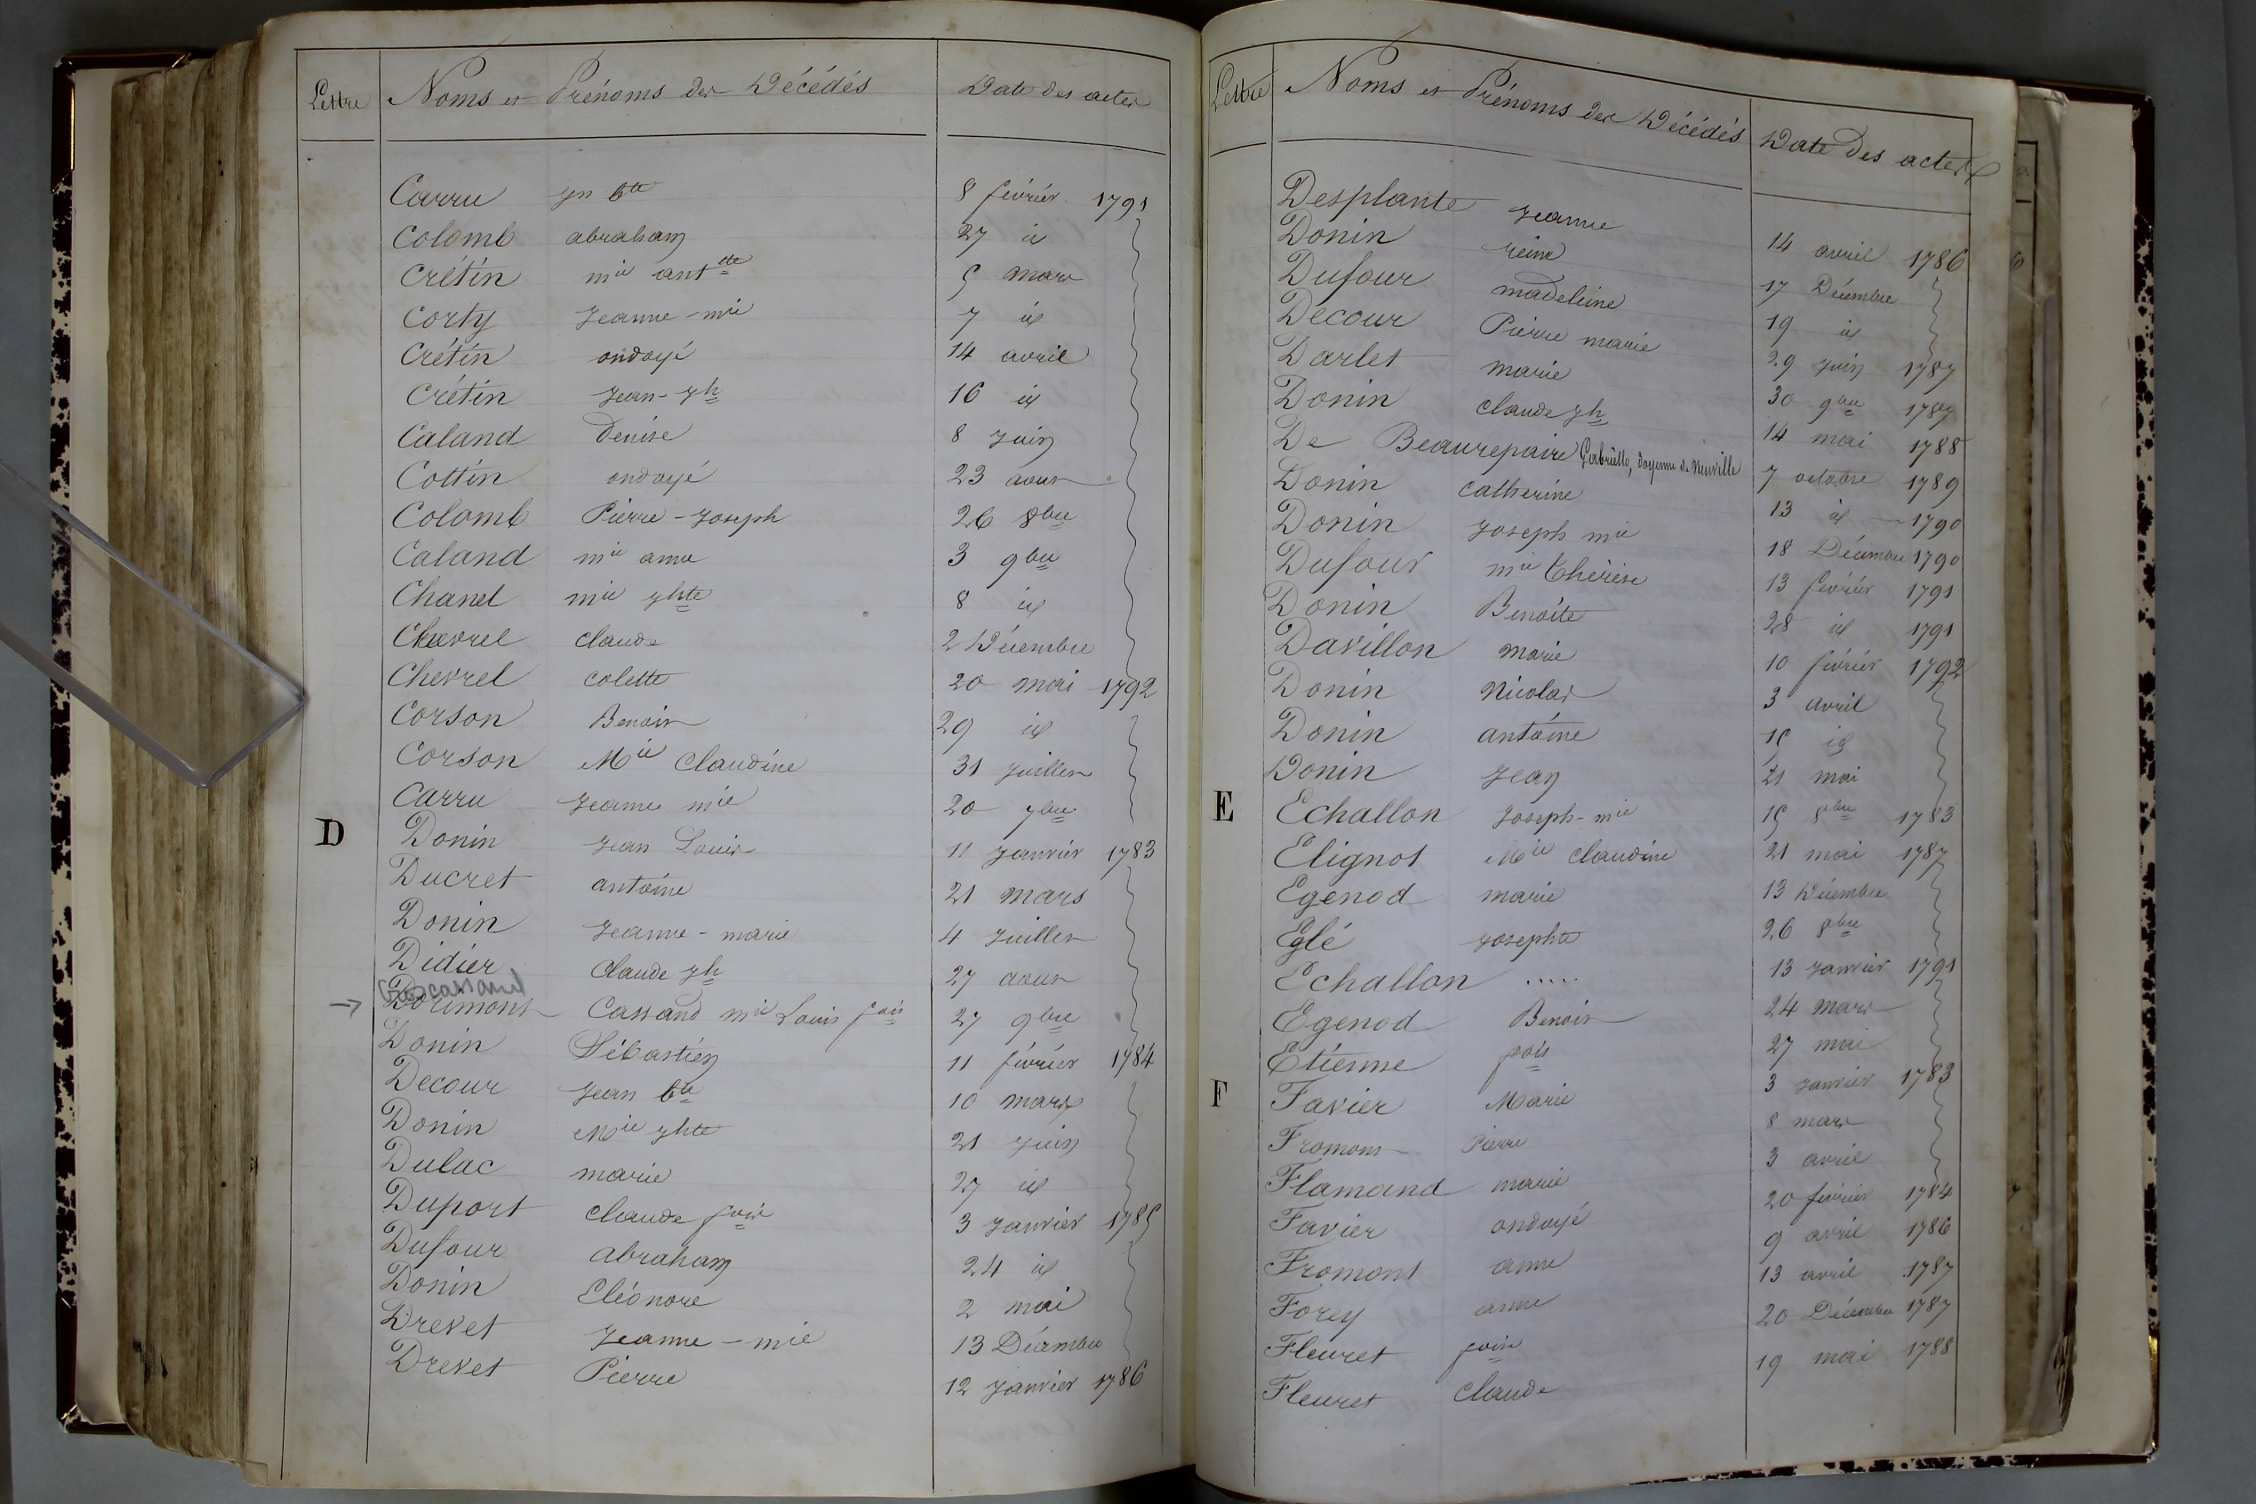 Lettre Noms et Prénoms des Décédés Date des actes
Carru jn bte 8 février 1791
Colomb abraham 27 id
Crétin mie antte 5 mars
Corty Jeanne-mie 7 id
Crétin ondoyé 14 avril
Crétin Jean-jh 16 id
Caland Denise 8 Juin
Cottin ondoyé 23 aout
Colomb Pierre-Joseph 26 8bre
Caland mie anne 3 9bre
Chanel mie jhte 8 id
Chevrel claude 2 Décembre
Chevrel colette 20 mai 1792
Corson Benoit 29 id
Corson Mie Claudine 31 Juillet
Carru Jeanne mie 20 7bre
D Donin Jean Louis 11 Janvier 1783
Ducret antoine 21 mars
Donin Jeanne-marie 4 Juillet
Didier Claude jh 27 aout
→ Doumont Cassand mie Louis fois 27 9bre
Donin Sébastien 11 février 1784
Decour Jean bte 10 mars
Donin Mie jhte 21 juin
Dulac marie 27 id
Duport claude fois 3 Janvier 1785
Dufour abraham 24 id
Donin Eléonore 2 mai
Drevet Jeanne-mie 13 Décembre
Drevet Pierre 12 Janvier 1786
Lettre Noms et Prénoms des Décédés Date des actes
Desplante Jeanne 14 avril 1786
Donin reine 17 Décembre
Dufour madeleine 19 id
Decour Pierre marie 29 Juin 1787
Darlet marie 30 9bre 1787
Donin claude jh 14 mai 1788
De Beaurepaire Gabrielle, doyenne de Neuville 7 octobre 1789
Donin catherine 13 id 1790
Donin Joseph mie 18 Décembre 1790
Dufour mie thérèse 13 février 1791
Donin Benoite 28 id 1791
Davillon marie 10 février 1792
Donin Nicolas 3 avril
Donin antoine 15 id
Donin Jean 21 mai
E Echallon Joseph-mie 15 8bre 1783
Elignot Mie claudine 21 mai 1787
Egenod marie 13 Décembre
Eglé Josephte 26 8bre
Echallon ..... 13 Janvier 1791
Egenod Benoit 24 mars
Etienne fois 27 mai
F Favier Marie 3 Janvier 1783
Fromont Pierre 8 mars
Flamand marie 3 avril
Favier ondoyé 20 février 1784
Fromont anne 9 avril 1786
Forey anne 13 avril 1787
Fleuret fois 20 Décembre 1787
Fleuret Claude 19 mai 1788